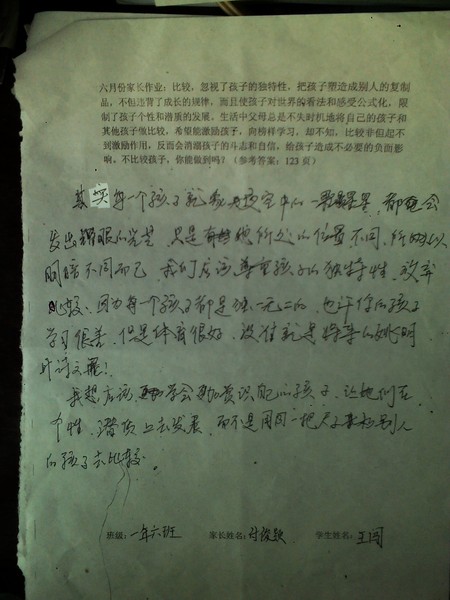 六月份家长作业：比较，忽视了孩子的独特性，把孩子塑造成别人的复制
品，不但违背了成长的规律，而且使孩子对世界的看法和感受公式化，限
制了孩子个性和潜质的发展。生活中父母总是不失时机地将自己的孩子和
其他孩子做比较，希望能激励孩子，向榜样学习，却不知，比较非但起不
到激励作用，反而会消磨孩子的斗志和自信，给孩子造成不必要的负面影
响，不比较孩子，你能做到吗？（参考答案：123页）
其实每一个孩子就天空中的一颗星，都会
发出耀眼的光芒，只是他所处的位置不同，所以
明暗不同而已，我们应该尊重孩子的独特性，放弃
比较、因为每一个孩子都是独一无二的，也许你的孩子
学习很差，但是体育很好，没准就是将来的姚明
叶诗文喔！
我想应该学会赏识自己的孩子，让她们在
个性、潜质上去发展，而不是用同一把尺子别人
的孩子去比较。
班级：一年六班 家长姓名：付 学生姓名：王闯